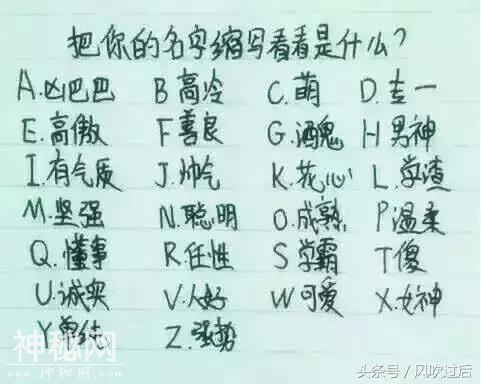 把你的名字缩写看看是什么?
A.凶巴巴 B高冷 C.萌 D.专一
E.高傲 F善良 G.酒鬼 H男神
I.有气质 J.帅气 K.花心 L.学渣
M.坚强 N.聪明 O.成熟 P温柔
Q.懂事 R.任性 S学霸 T傻
U.诚实 V.人好 W可爱 X.女神
Y Z.强势
神秘网
头条号 / 风吹过后